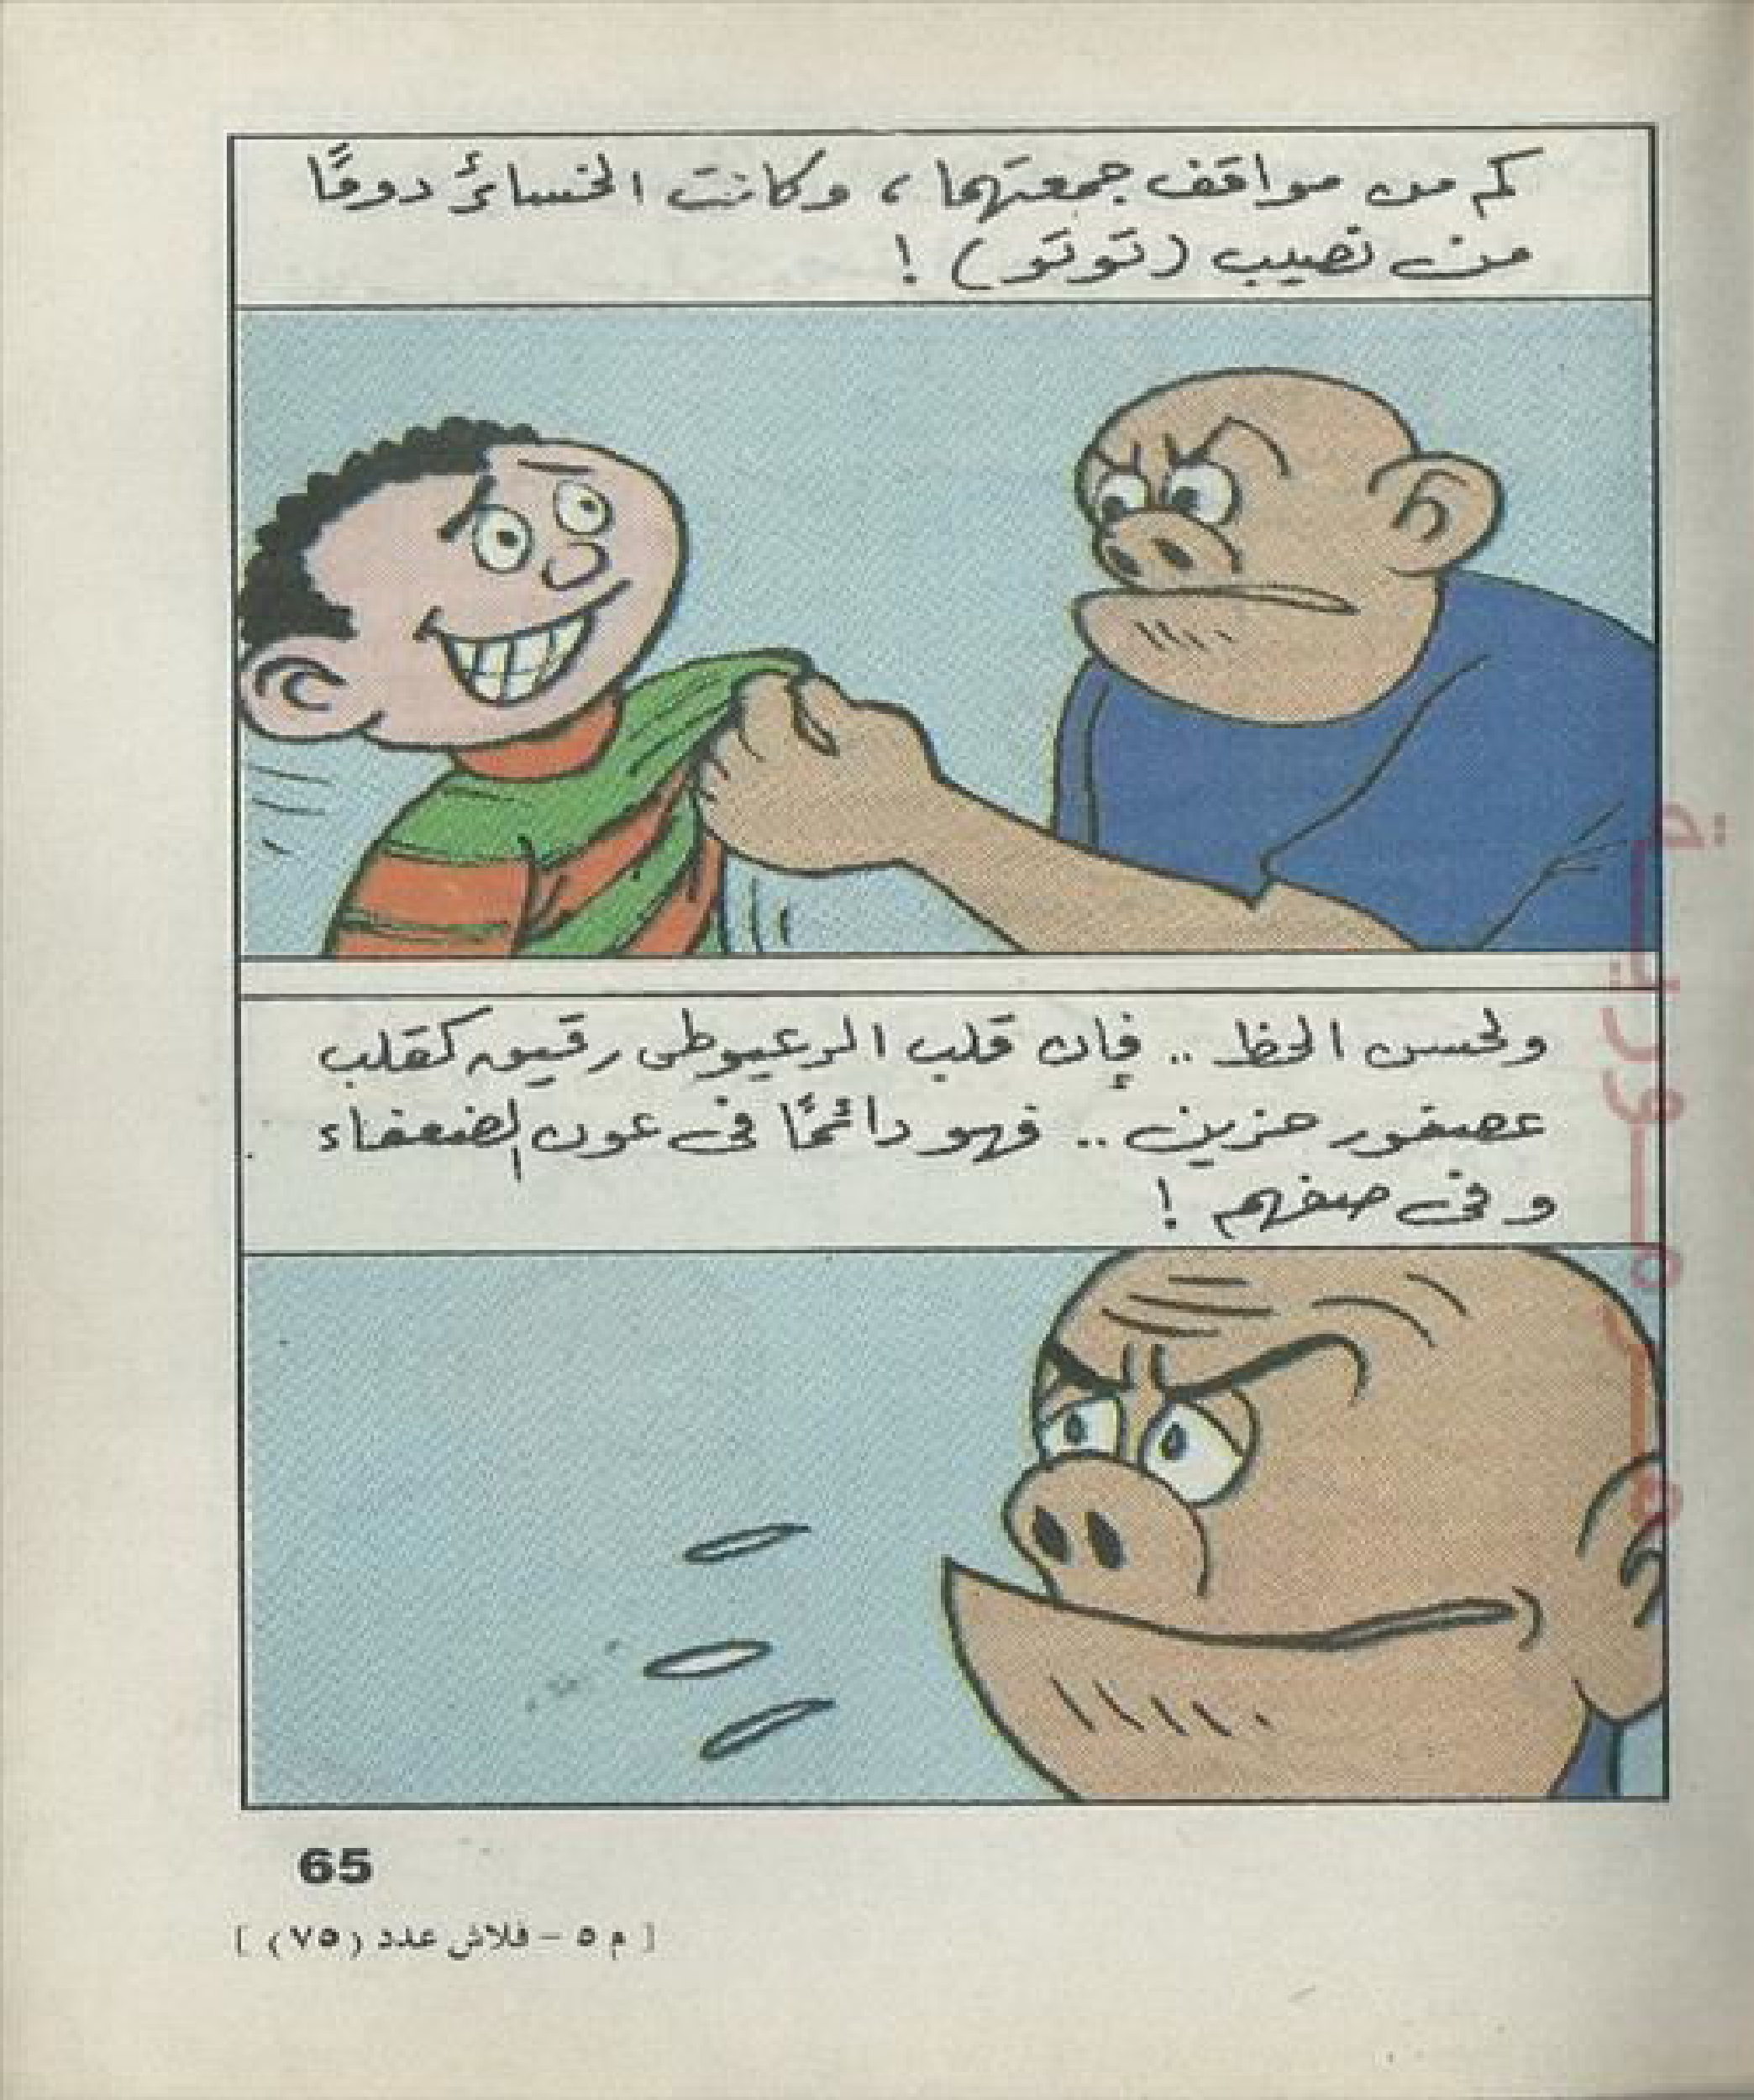 كم من مواقف جمعتهما ، وكانت الخسائرُ دومًا
من نصيب (تَوتَو) !
ولحسن الحظ .. فإن قلب الرعيوطى رقيق كقلب
عصفور حزين .. فهو دائمًا فى عون الضعفاء
و فى صفهم !
65
[ م ٥ – فلاش عدد (٧٥) ]